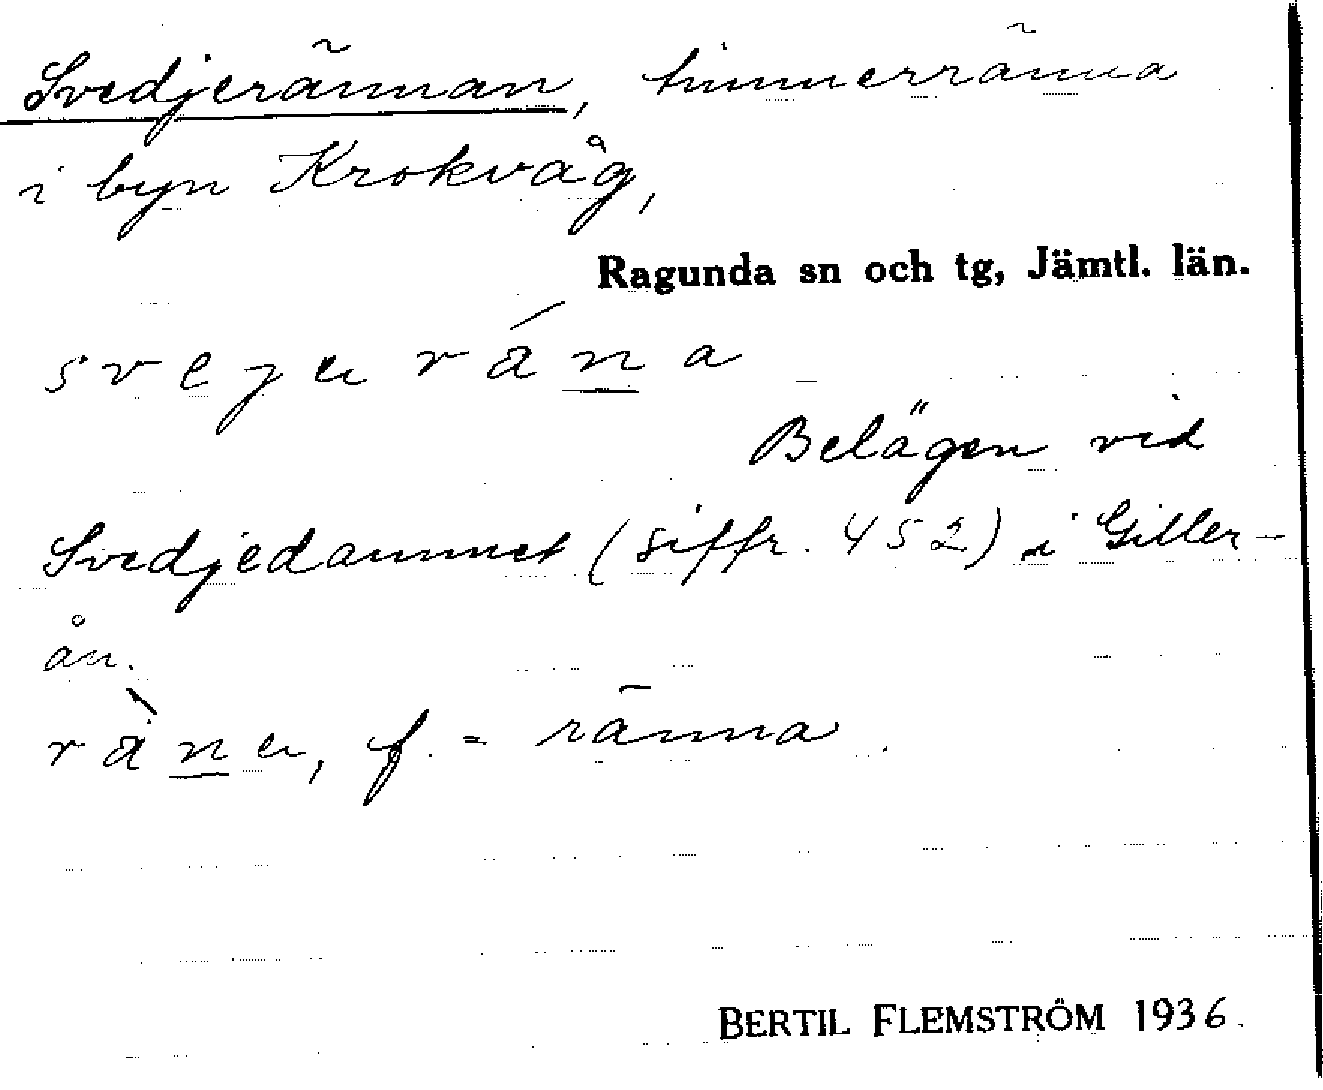 Svedjerännan, timmerränna
i byn Krokvåg,
Ragunda sn och tg, Jämtl. län.
Belägen vid
Svedjedammet (siffr. 452) i Giller-
ån.
f. = ränna.
BERTIL FLEMSTRÖM 1936.